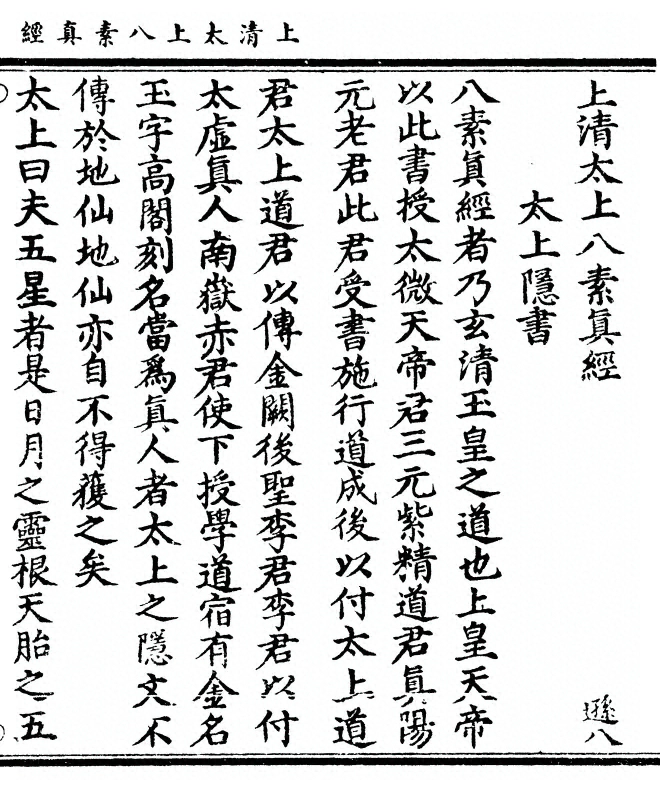 上清太上八素真經
上清太上八素眞經
遜八
太上隱書
八素眞經者乃玄清玉皇之道也上皇天帝
以此書授太微天帝君三元紫精道君眞陽
元老君此君受書施行道成後以付太上道
君太上道君以傳金闕後聖李君李君以付
太虛眞人南嶽赤君使下授學道宿有金名
玉字高閣刻名當爲眞人者太上之隱文不
傳於地仙地仙亦自不得蒦之矣
太上曰夫五星者是日月之靈根天胎之五